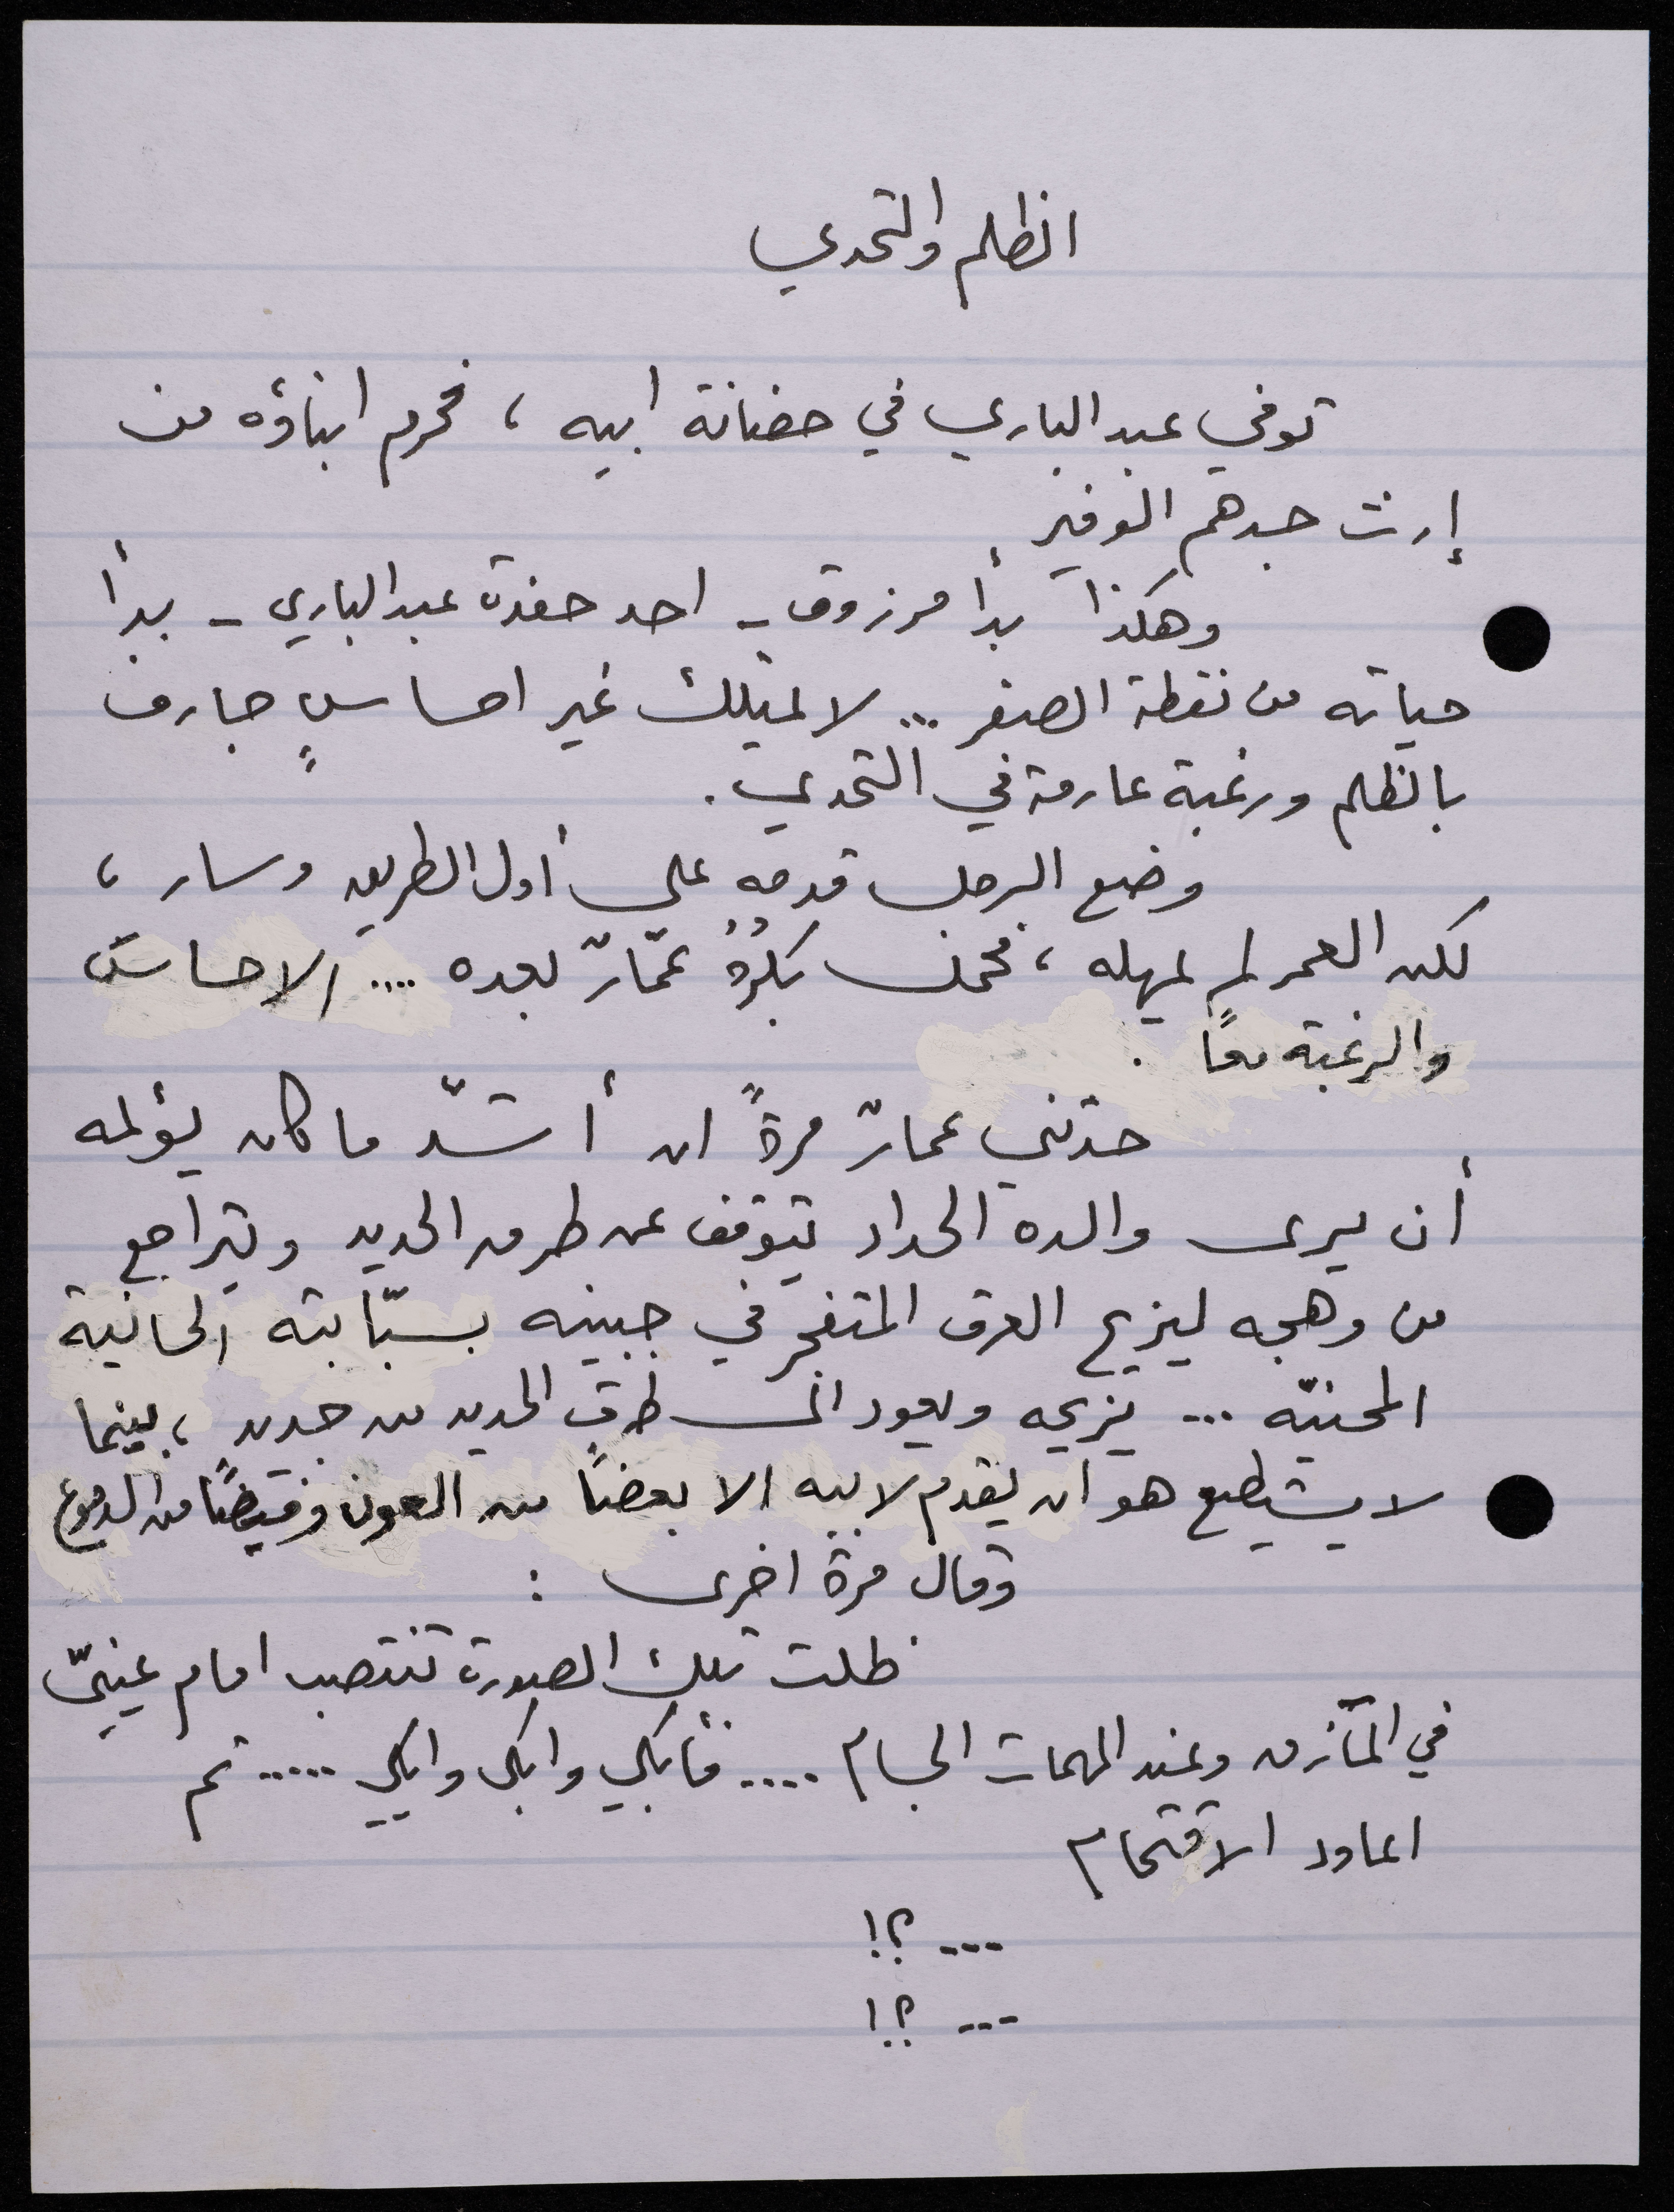 الظلم والتحدي
توفي عبد الباري في حضانة ابيه ، فحرم ابناؤه من
إرث جدهم الوفير
وهكذا بدأ مرزوق - احد حفدة عبد الباري - بدأ
حياته من نقطة الصفر ... لا يمتلك غير احساسٍ جارف
بالظلم ورغبة عارمة في التحدي .
وضع الرجل قدمه على أول الطريق وسار ،
لكن العمر لم يمهله ، فحمل بكرُهُ عمّارٌ بعده .... الاحساسَ
والرغبة معًا .
حدثني عمارٌ مرةً ان أشدّ ما كان يؤلمه
أن يرى والده الحداد يتوقف عن طرق الحديد ويتراجع
من وهجه ليزيح العرق المتفجر في جبينه بسبّابته الحانية
المحنيّة ... يزيحه ويعود الى طرق الحديد من جديد ، بينما
لا يستطيع هو ان يقدم لابيه الا بعضًا من العون وفيضًا من الدموع
وقال مرة اخرى :
ظلت تلك الصورة تنتصب امام عينيّ
في المآزق وعند المهمات الجسام .... فأبكي وابكي وابكي ..... ثم
اعاود الاقتحام
... ؟!
... ؟!